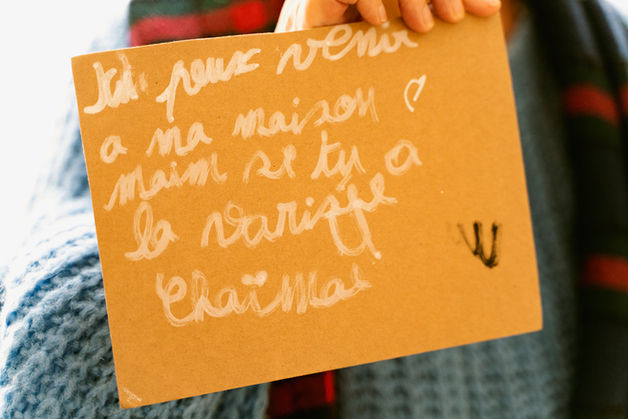 Tu peux venir
a ma maison
maim si ty a
la varisele
Chaïma